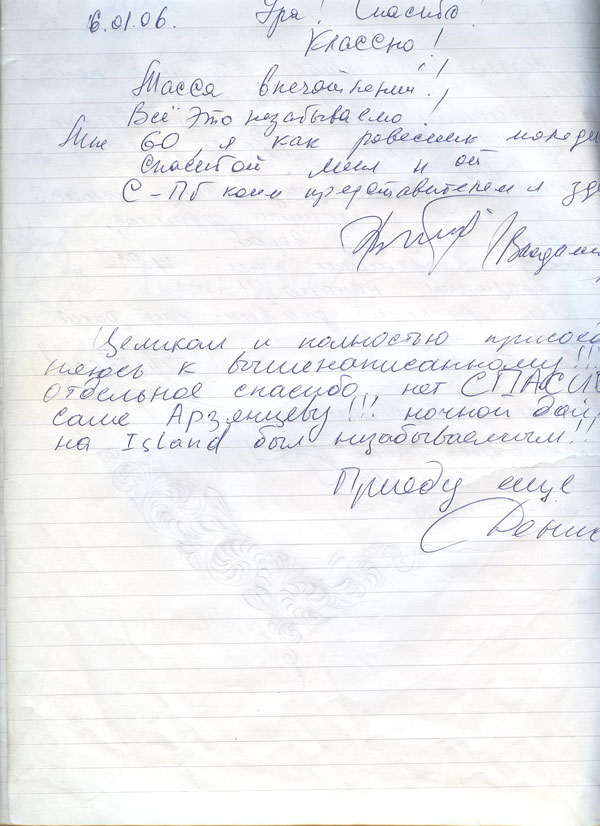 16.01.06. Ура! Спасибо!
Классно!
Масса впечатлений!!
Всё это незабываемо!
Мне 60, я как ровесник молоде
С-Пб
Владим
Целиком и полностью присое
няюсь к вышенаписанному!!!
Отдельное спасибо, нет СПАСИБ
саше Арзянцеву!!! ночной дай
на Island был незабываемым!!
Приеду еще
Денис